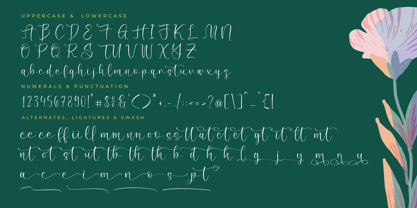 UPPERCASE & LOWERCASE
A B C D E F G H I J K L M N
O P Q R S T U V W X Y Z
a b c d e f g h i j k l m n o p q r s t u v w x y z
NUMERALS & PUNCTUATION
1 2 3 4 5 6 7 8 9 0 !
ALTERNATES, LIGATURES & SWASH
cc ee ff ii ll mm nn oo ss tt at ct et gt it lt mt
nt ot st ut lb th b d h k l g j y m n y
a c e i m n o s pt